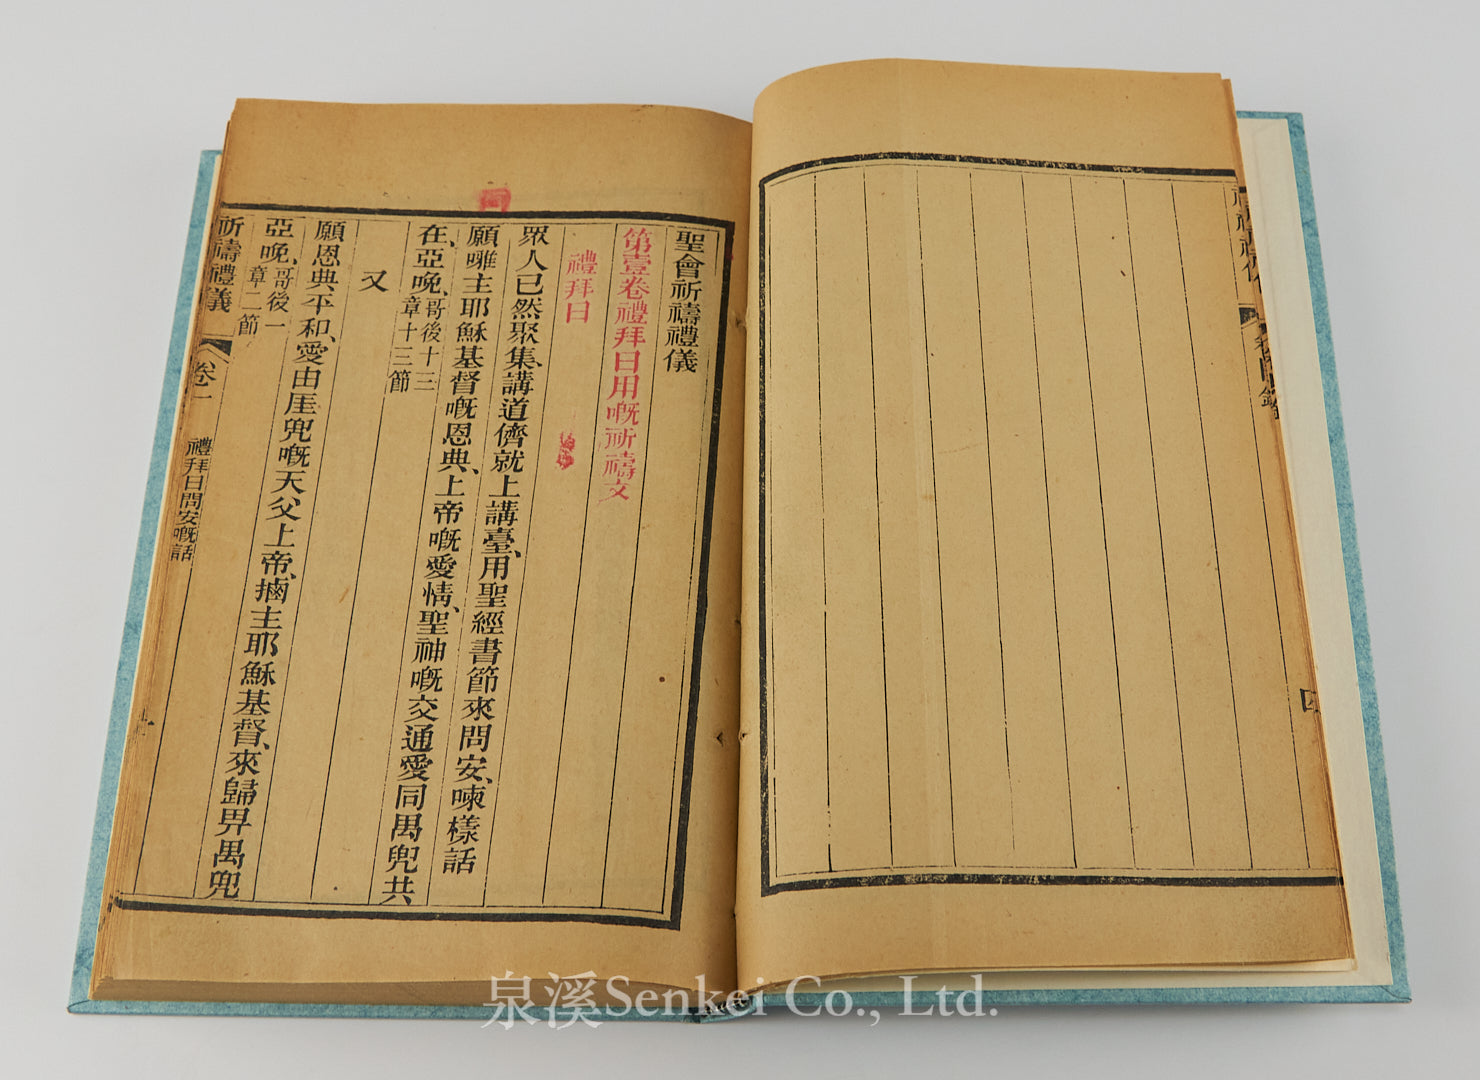 聖會祈禱禮儀
第壹卷禮拜日用嘅祈禱文
禮拜日
眾人已然聚集、講道儕就上講臺、用聖經書節來問安、㖠樣話
願𠊎主耶穌基督嘅恩典、上帝嘅愛情、聖神嘅交通愛同禺兜共
在、亞晚、哥後十三章十三節
又
願恩典、平和、愛由厓兜嘅天父上帝、㨢主耶穌基督、來歸畀禺兜
亞晚、哥後一章二節
祈禱禮儀
卷一
禮拜日問安嘅話
四
泉溪Senkei Co., Ltd.